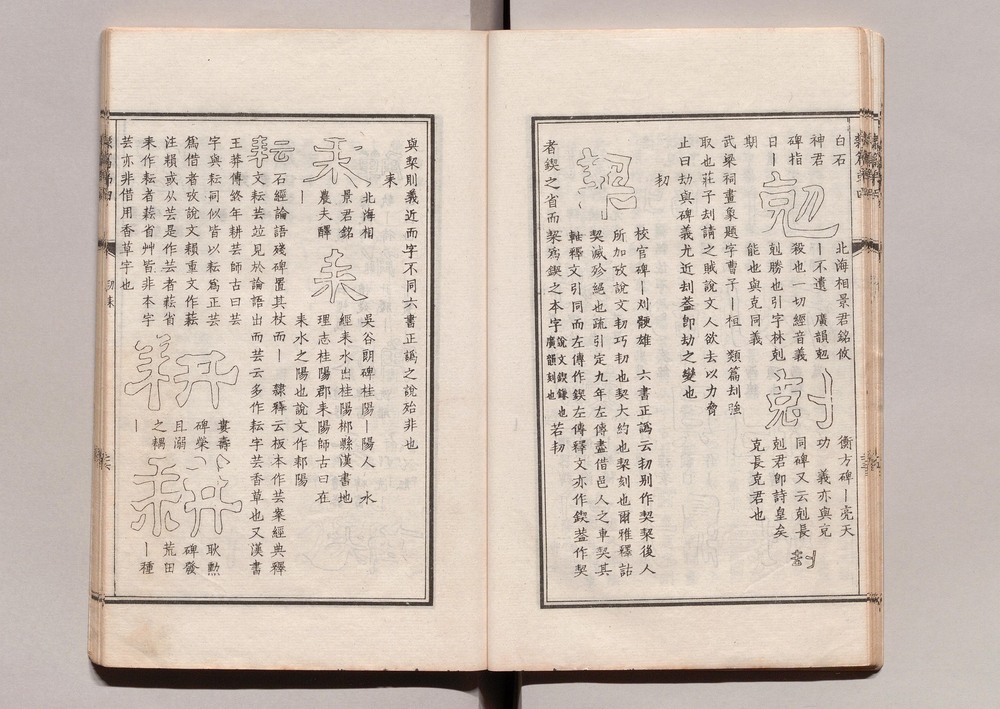 白石
神君
碑指
日丨
期
剋
北海相景君銘攸
丨不遺 廣韻剋
殺也一切經音義
剋勝也引字林剋
能也與克同義
剋
衡方碑丨亮天
功 義亦與克
同碑又云剋長
剋君卽詩皇矣
克長克君也
武梁祠畫象題字曹子丨桓 類篇刦強
取也莊子刦請之賊說文人欲去以力脅
止曰劫與碑義尤近去刦葢卽劫之變也
㓞
契
校官碑丨刈骾雄 六書正譌云㓞别作契栔後人
所加攷說文㓞巧㓞也契大約也栔刻也爾雅釋詁
契滅殄絕也疏引定九年左傳盡借邑人之車契其
軸釋文引同而左傳作鍥左傳釋文亦作鍥葢作契
者鍥之省而栔爲鍥之本字說文鍥鎌也若㓞
廣韻鍥刻也
與栔則義近而字不同六書正譌之說殆非也
耒
耒
北海相
景君銘
農夫醳
丨
耒
吳谷朗碑桂陽丨陽人 水
經耒水出桂陽郴縣漢書地
理志桂陽郡耒陽師古曰在
耒水之陽也說文作䣂陽
耘
石經論語殘碑置其杖而丨 隸釋云板本作芸案經典釋
文耘芸竝見於論語出而芸云多作耘字芸香草也又漢書
王莽傳終年耕芸師古曰芸
字與耘同似皆以耘爲正芸
爲借者攷說文䅵重文作𦺋
注䅵或从芸是作芸者𦺋省
耒作耘者𦺋省艸皆非本字
芸亦非借用香草字也
耕
婁壽
碑榮
且溺
之耦
丨
耕
耿勲
碑發
荒田
丨種